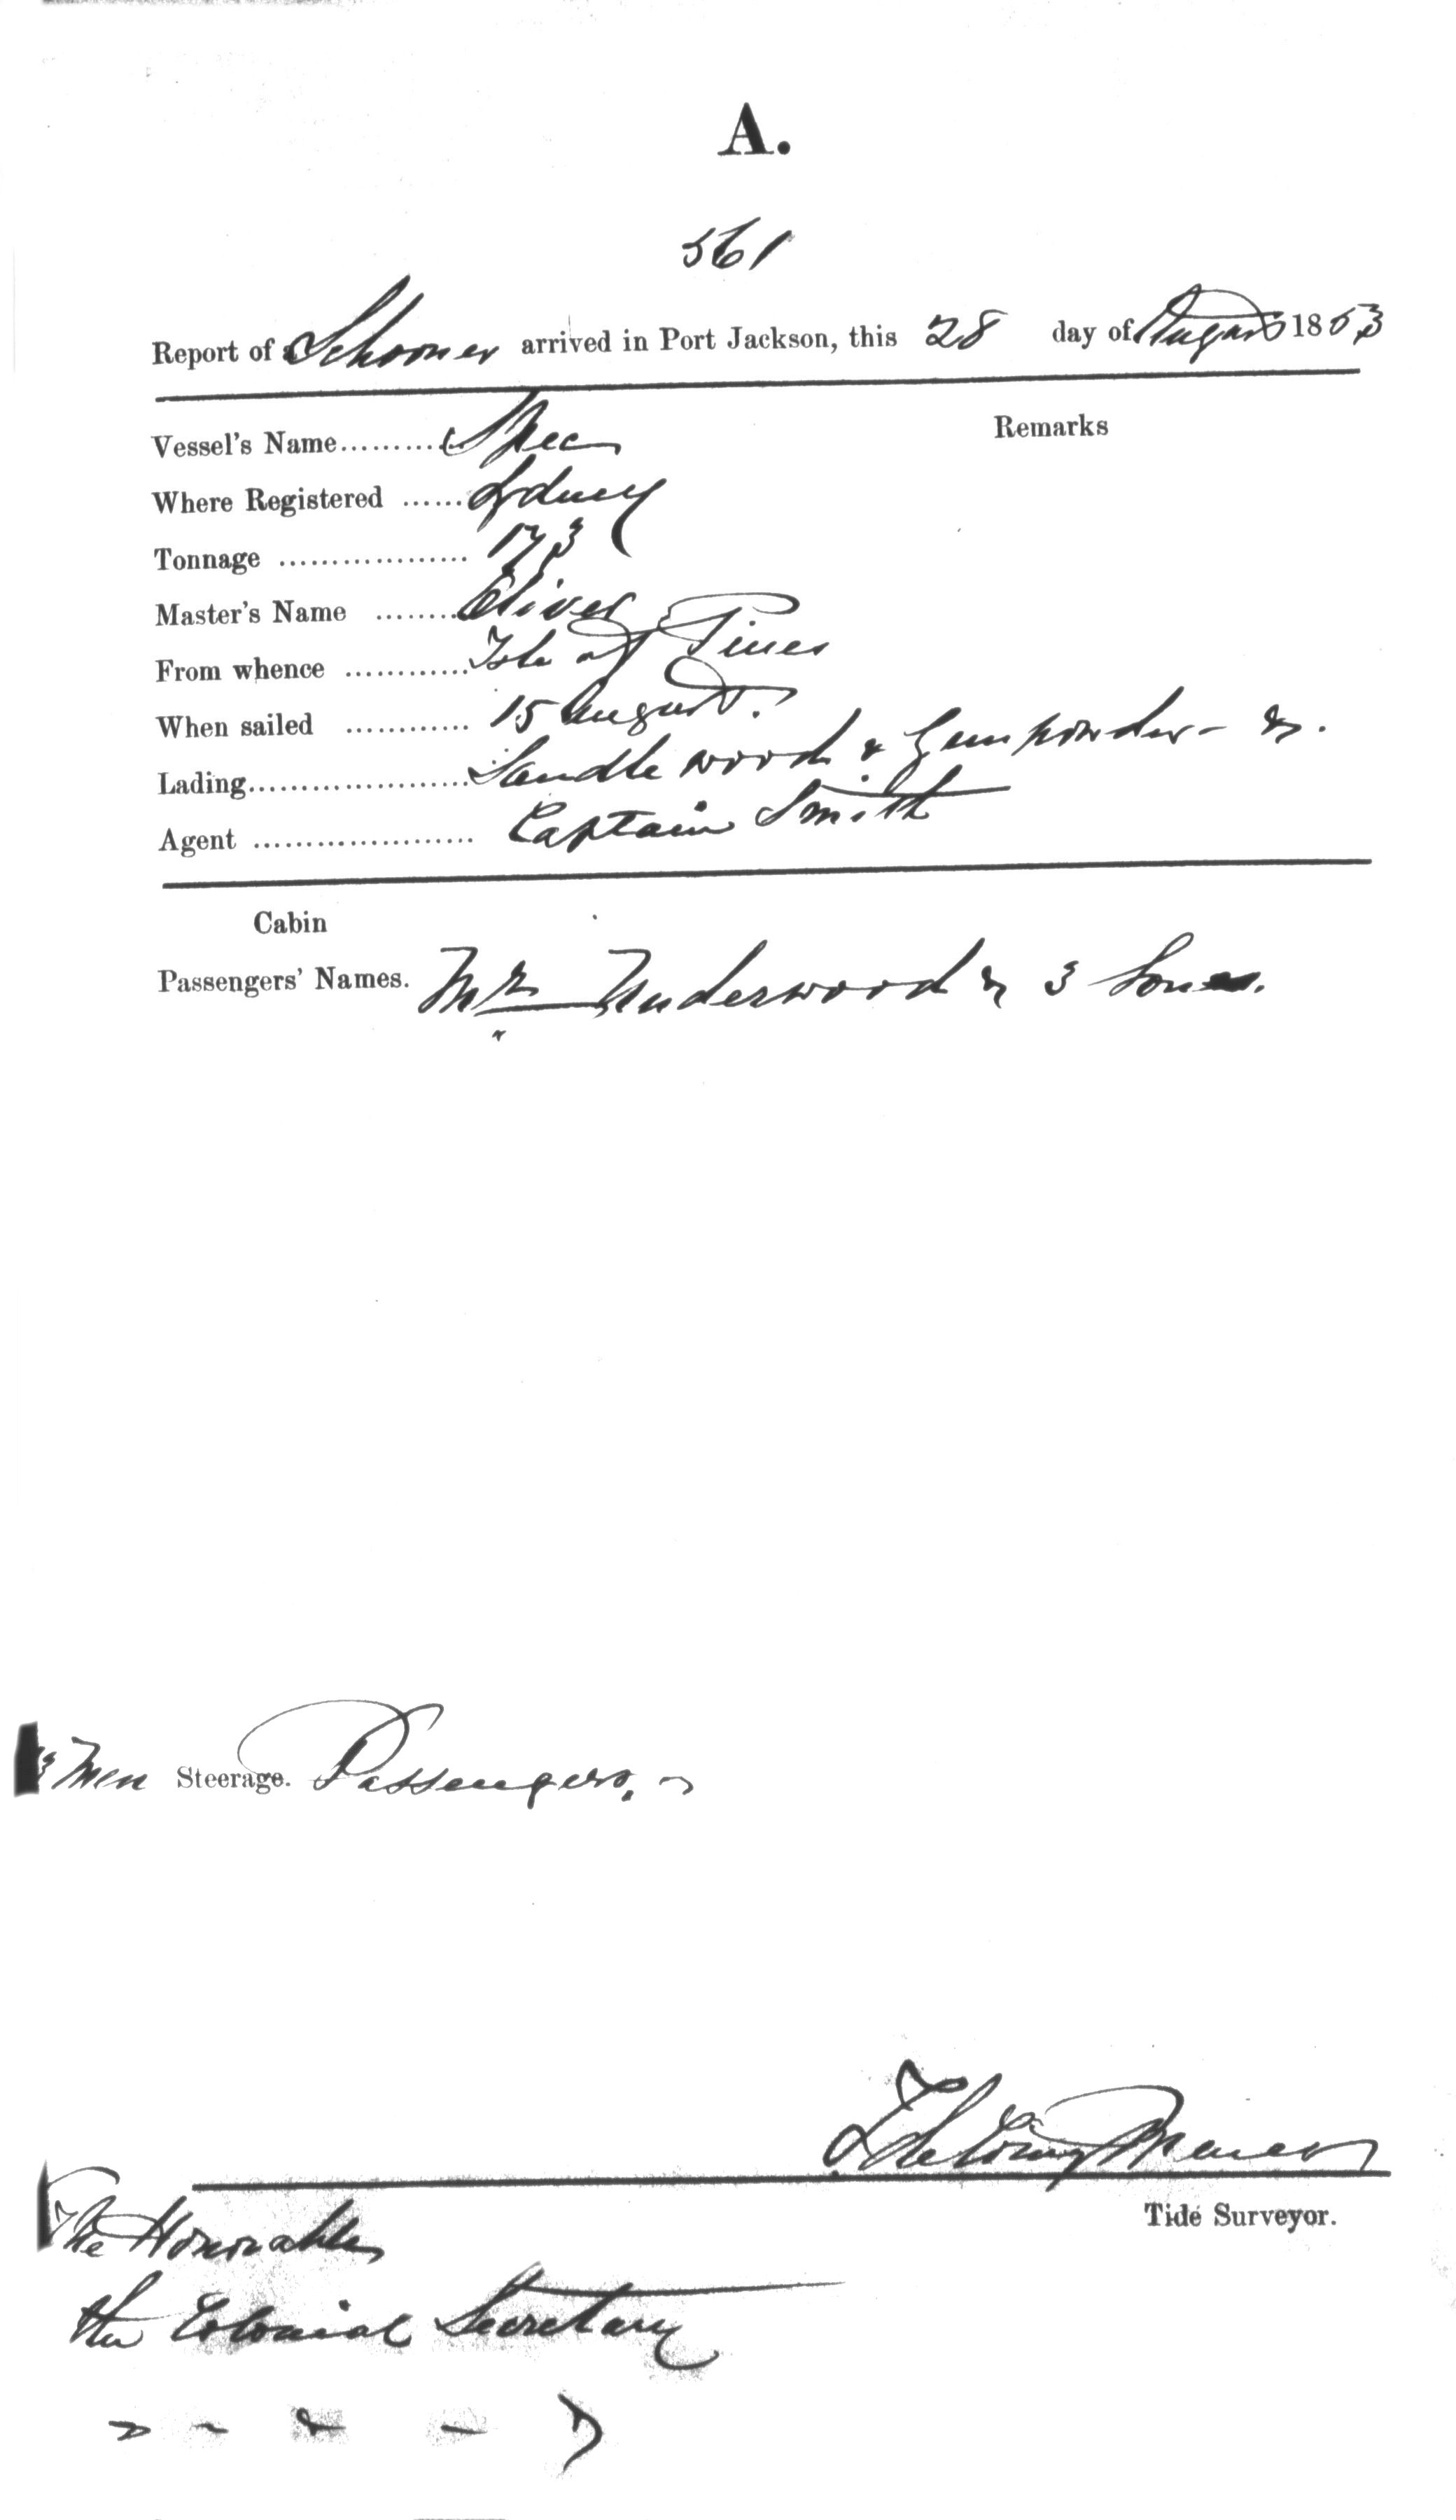 A.
561
Report of Schooner arrived in Port Jackson, this 28 day of August 1853
Remarks
Vessel's Name.........Spec
Where Registered ......Sydney
Tonnage .................. 173
Master's Name ........Oliver
From whence ............Isle of Pines
When sailed ............ 15 August.
Lading.....................Sandle wood & Gunpowder - &.
Agent ..................... Captain Smith
Cabin
Passengers' Names. Mr Underwood & 3 Sons.
3 Men Steerage. Passengers.
Tide Surveyor.
The Honorable
the Colonial Secretary